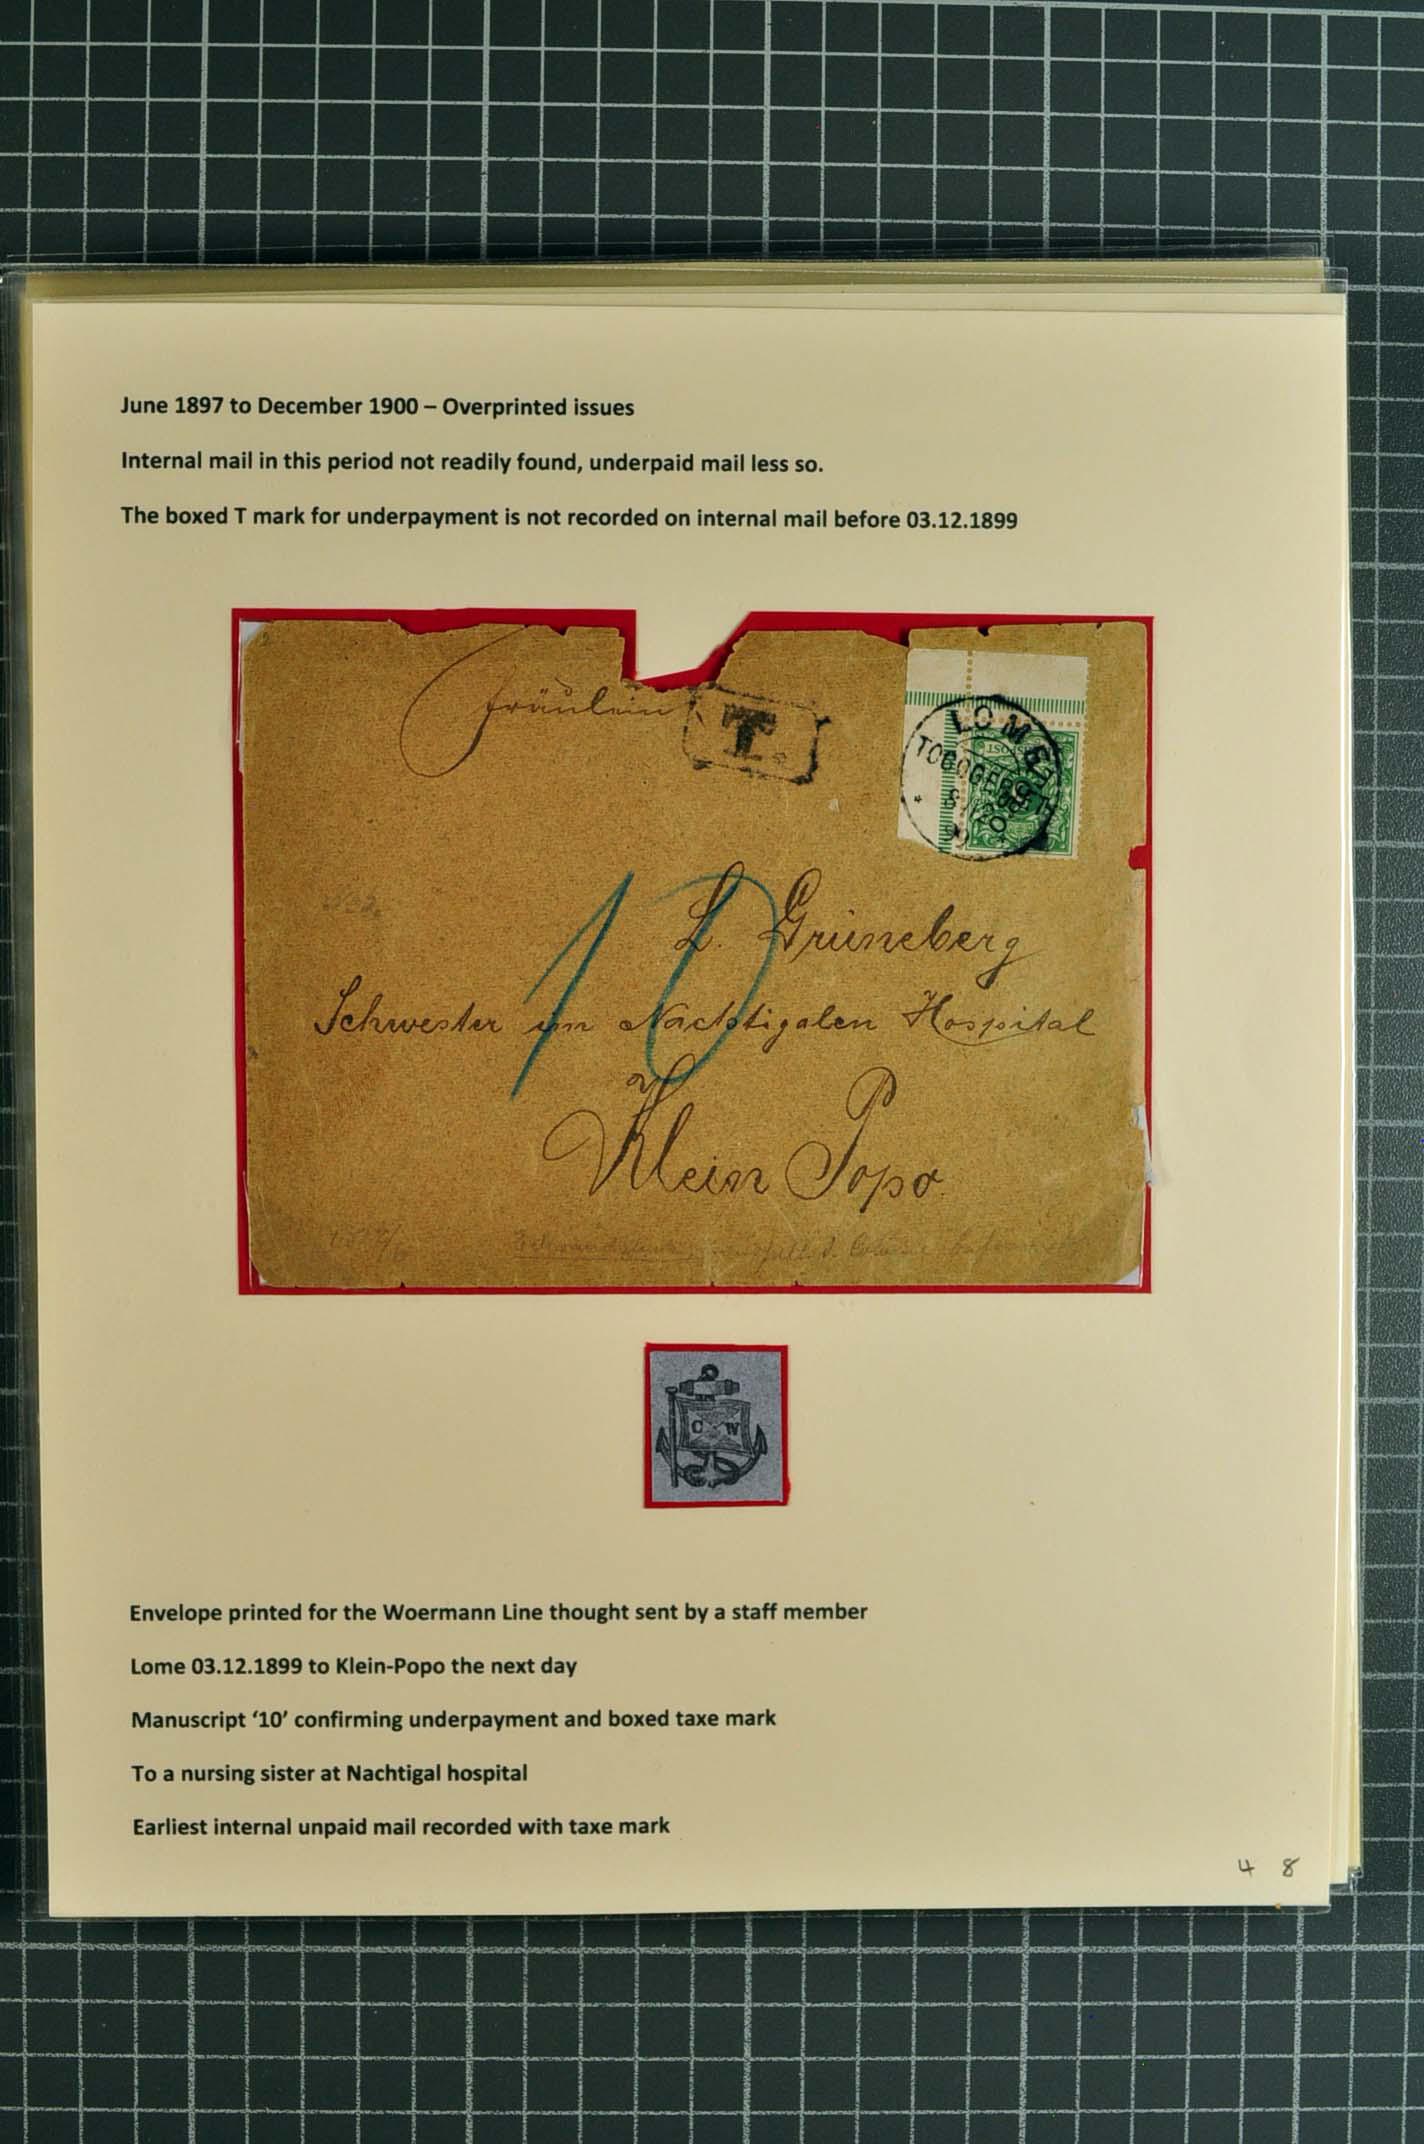 June 1897 to December 1900 – Overprinted issues
Internal mail in this period not readily found, underpaid mail less so.
The boxed T mark for underpayment is not recorded on internal mail before 03.12.1899
Fräulein
T.
LOME
TOGOGEBIET
99
10
L. Grüneberg
Schwester im Nachtigalen Hospital
Klein Popo
C W
Envelope printed for the Woermann Line thought sent by a staff member
Lome 03.12.1899 to Klein-Popo the next day
Manuscript ‘10’ confirming underpayment and boxed taxe mark
To a nursing sister at Nachtigal hospital
Earliest internal unpaid mail recorded with taxe mark
4 8